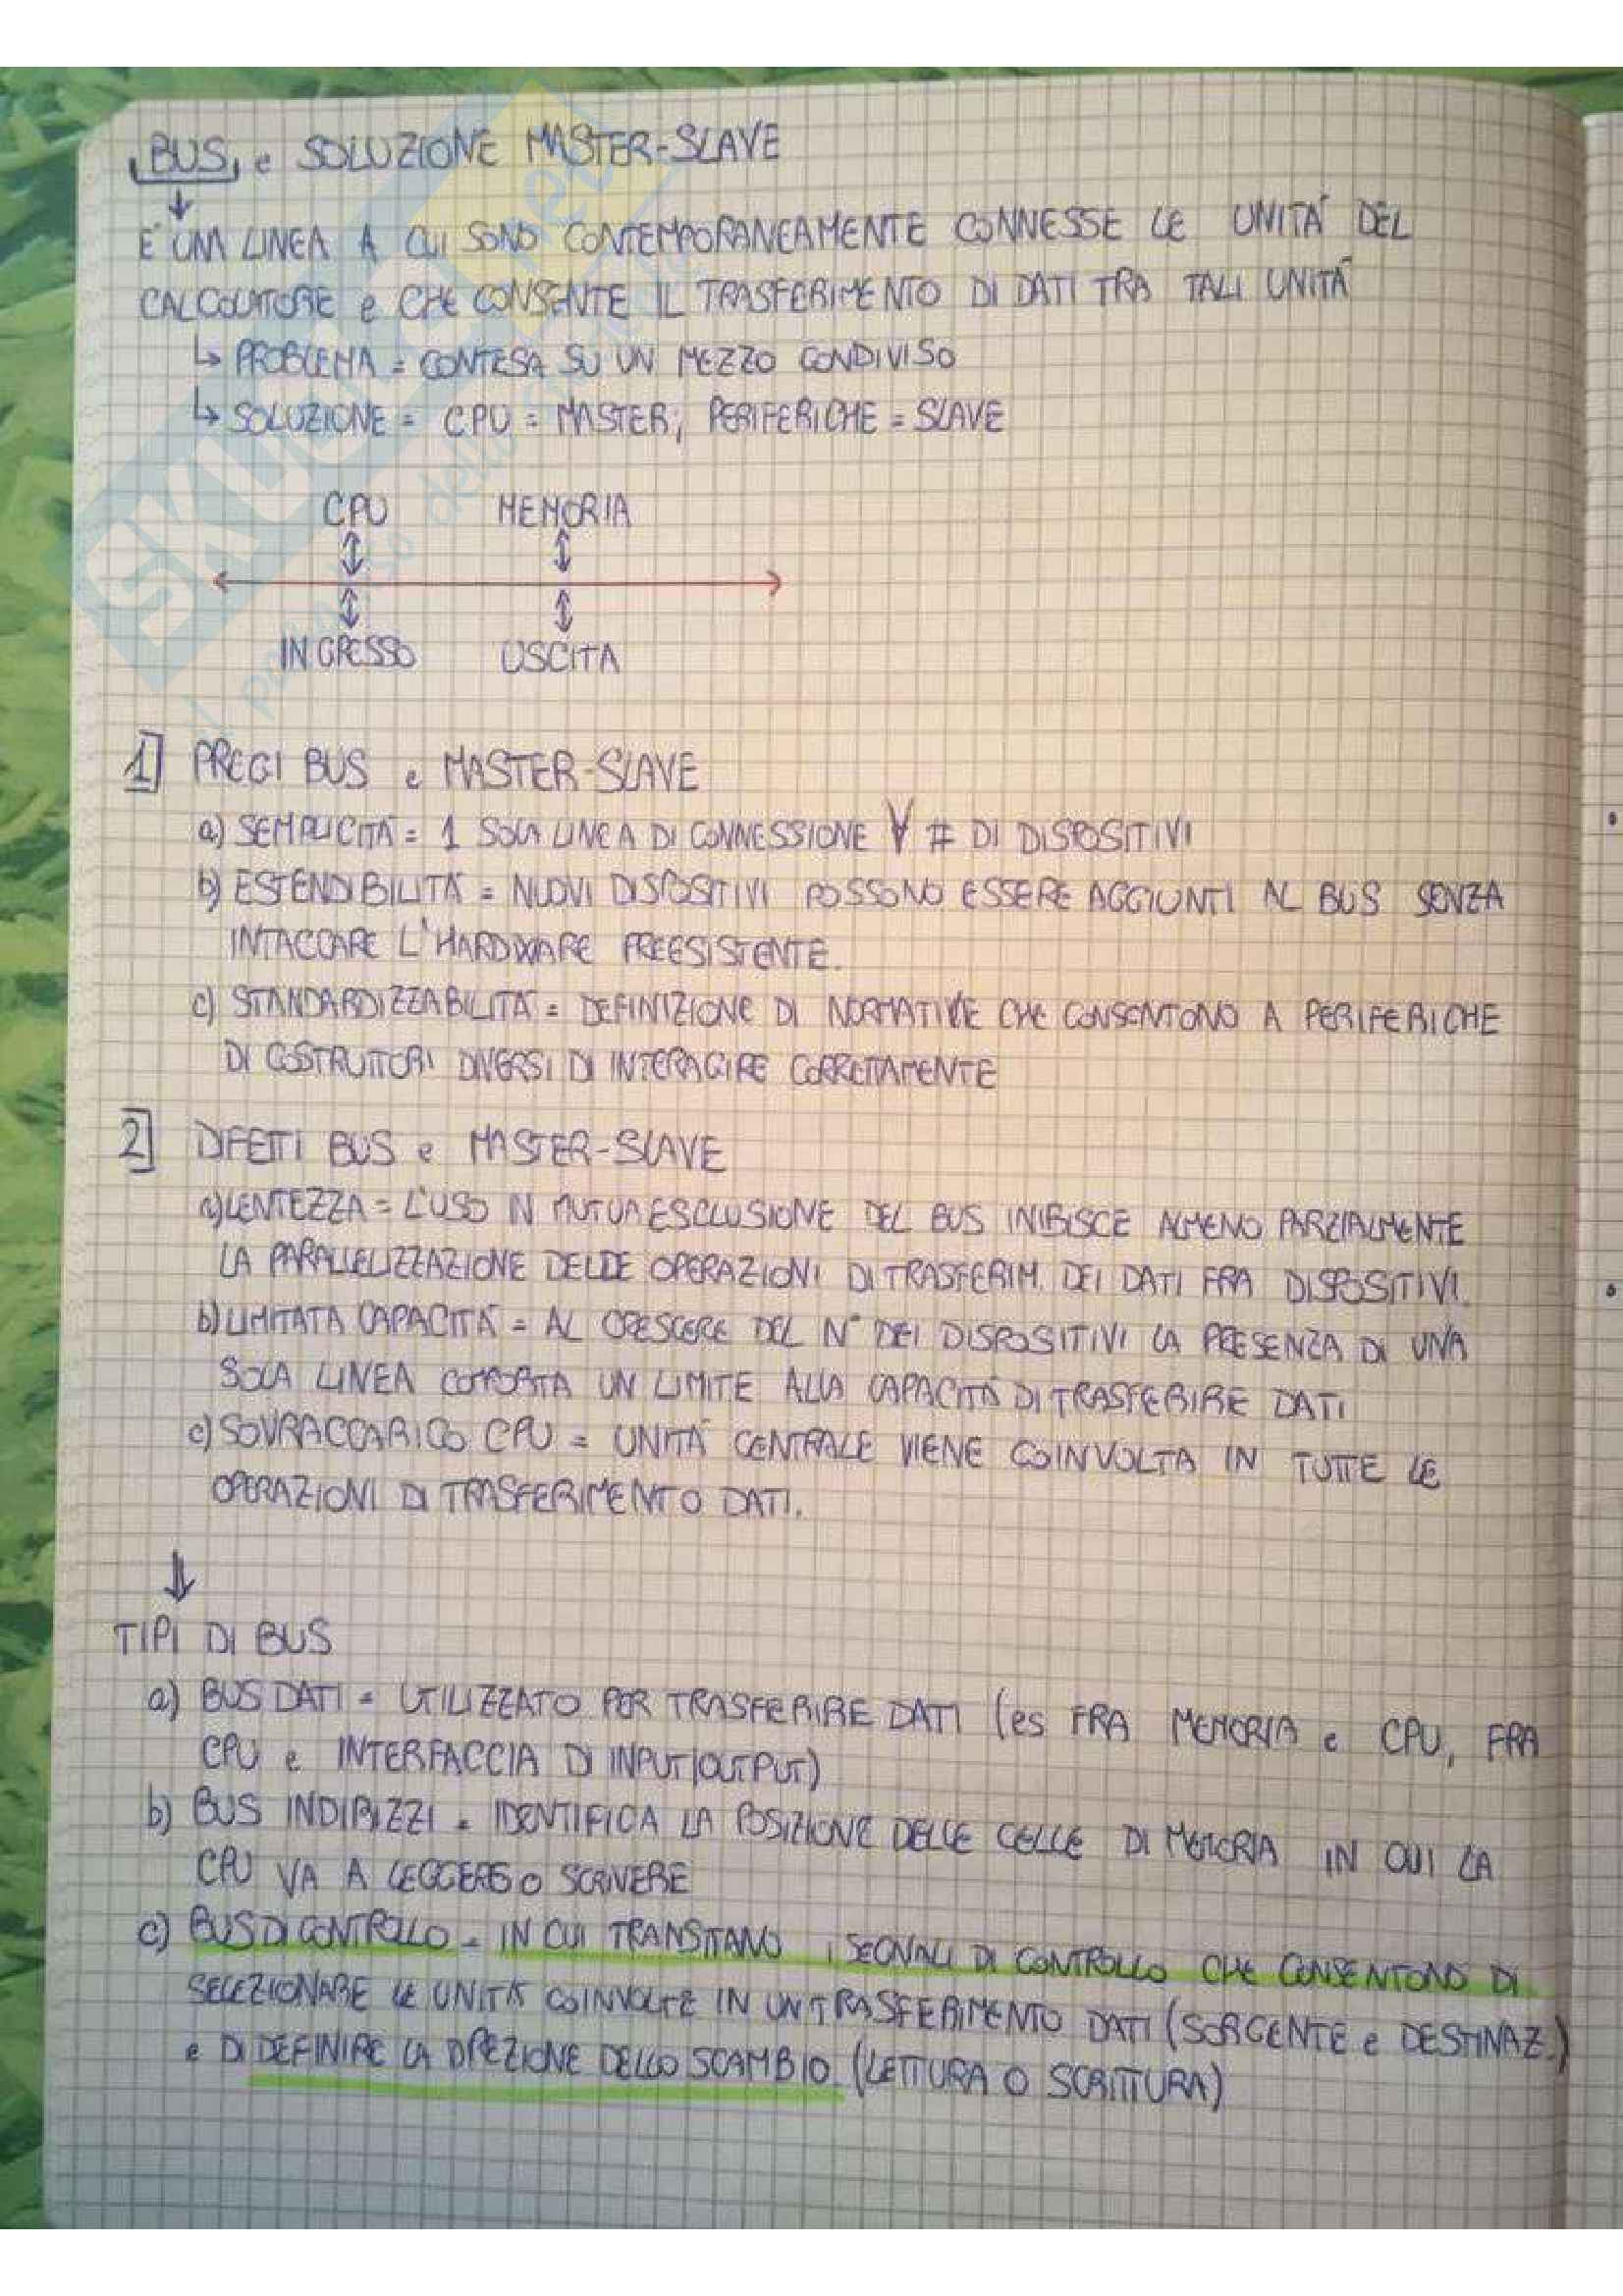 BUS e SOLUZIONE MASTER-SLAVE
È UNA LINEA A CUI SONO CONTEMPORANEAMENTE CONNESSE LE UNITÀ DEL
CALCOLATORE e CHE CONSENTE IL TRASFERIMENTO DI DATI TRA TALI UNITÀ
↳ PROBLEMA = CONTESA SU UN MEZZO CONDIVISO
↳ SOLUZIONE = CPU = MASTER; PERIFERICHE = SLAVE
CPU MEMORIA
INGRESSO USCITA
1] PREGI BUS e MASTER-SLAVE
a) SEMPLICITÀ = 1 SOLA LINEA DI CONNESSIONE ∀ # DI DISPOSITIVI
b) ESTENDIBILITÀ = NUOVI DISPOSITIVI POSSONO ESSERE AGGIUNTI AL BUS SENZA
INTACCARE L'HARDWARE PREESISTENTE.
c) STANDARDIZZABILITÀ = DEFINIZIONE DI NORMATIVE CHE CONSENTONO A PERIFERICHE
DI COSTRUTTORI DIVERSI DI INTERAGIRE CORRETTAMENTE
2] DIFETTI BUS e MASTER-SLAVE
a) LENTEZZA = L'USO IN MUTUA ESCLUSIONE DEL BUS INIBISCE ALMENO PARZIALMENTE
LA PARALLELIZZAZIONE DELLE OPERAZIONI DI TRASFERIM. DEI DATI FRA DISPOSITIVI.
b) LIMITATA CAPACITÀ = AL CRESCERE DEL N° DEI DISPOSITIVI LA PRESENZA DI UNA
SOLA LINEA COMPORTA UN LIMITE ALLA CAPACITÀ DI TRASFERIRE DATI
c) SOVRACCARICO CPU = UNITÀ CENTRALE VIENE COINVOLTA IN TUTTE LE
OPERAZIONI DI TRASFERIMENTO DATI.
↓
TIPI DI BUS
a) BUS DATI = UTILIZZATO PER TRASFERIRE DATI (es FRA MEMORIA e CPU, FRA
CPU e INTERFACCIA DI INPUT/OUTPUT)
b) BUS INDIRIZZI = IDENTIFICA LA POSIZIONE DELLE CELLE DI MEMORIA IN CUI LA
CPU VA A LEGGERE O SCRIVERE
c) BUS DI CONTROLLO = IN CUI TRANSITANO I SEGNALI DI CONTROLLO CHE CONSENTONO DI
SELEZIONARE LE UNITÀ COINVOLTE IN UN TRASFERIMENTO DATI (SORGENTE e DESTINAZ.)
e DI DEFINIRE LA DIREZIONE DELLO SCAMBIO (LETTURA O SCRITTURA)